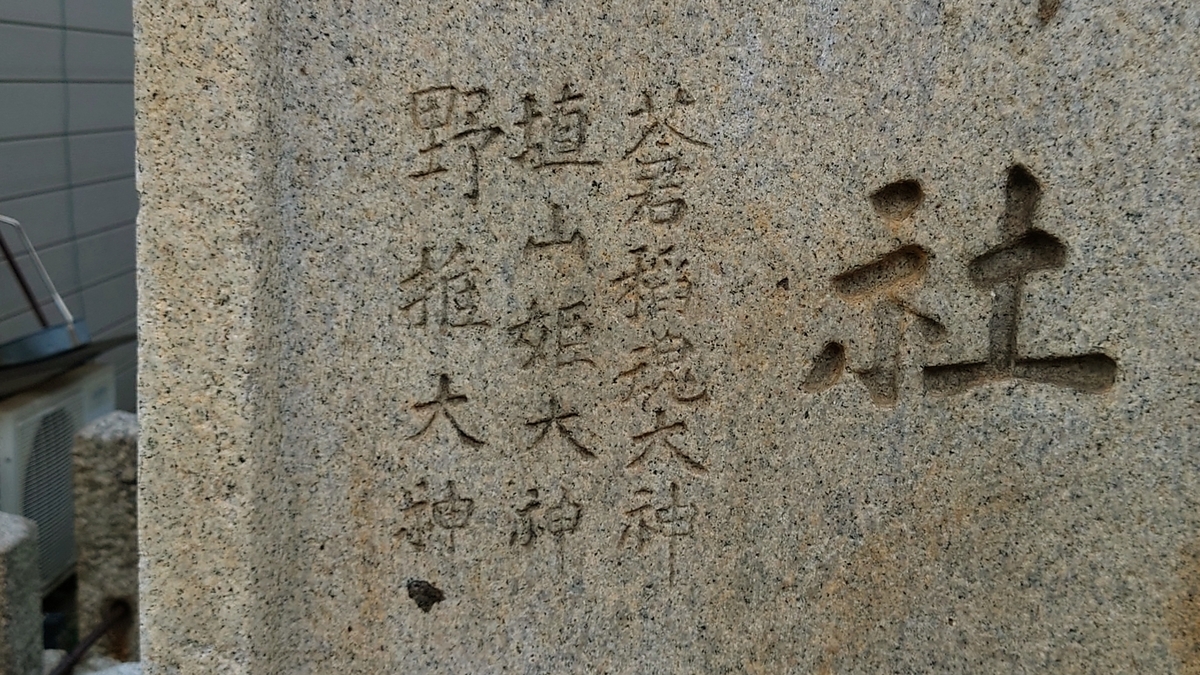 社
蒼稲魂大神
埴山姫大神
野椎大神